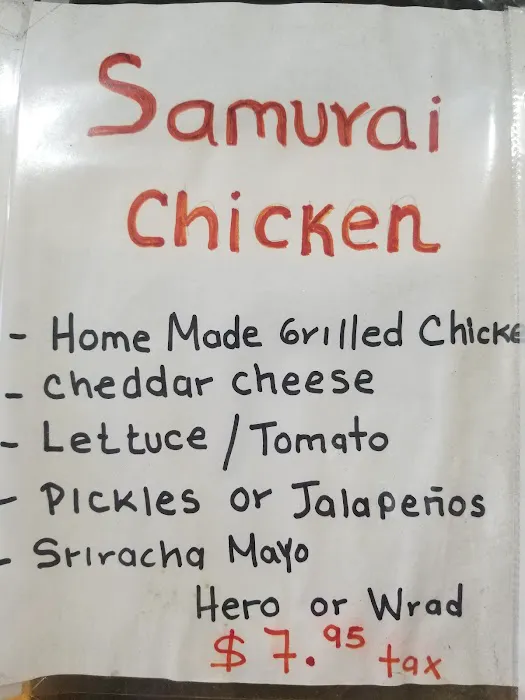 Samurai
Chicken
- Home Made Grilled Chicke
- Cheddar cheese
- Lettuce / Tomato
- Pickles or Jalapeños
- Sriracha Mayo
Hero or Wrad
$7.95 tax